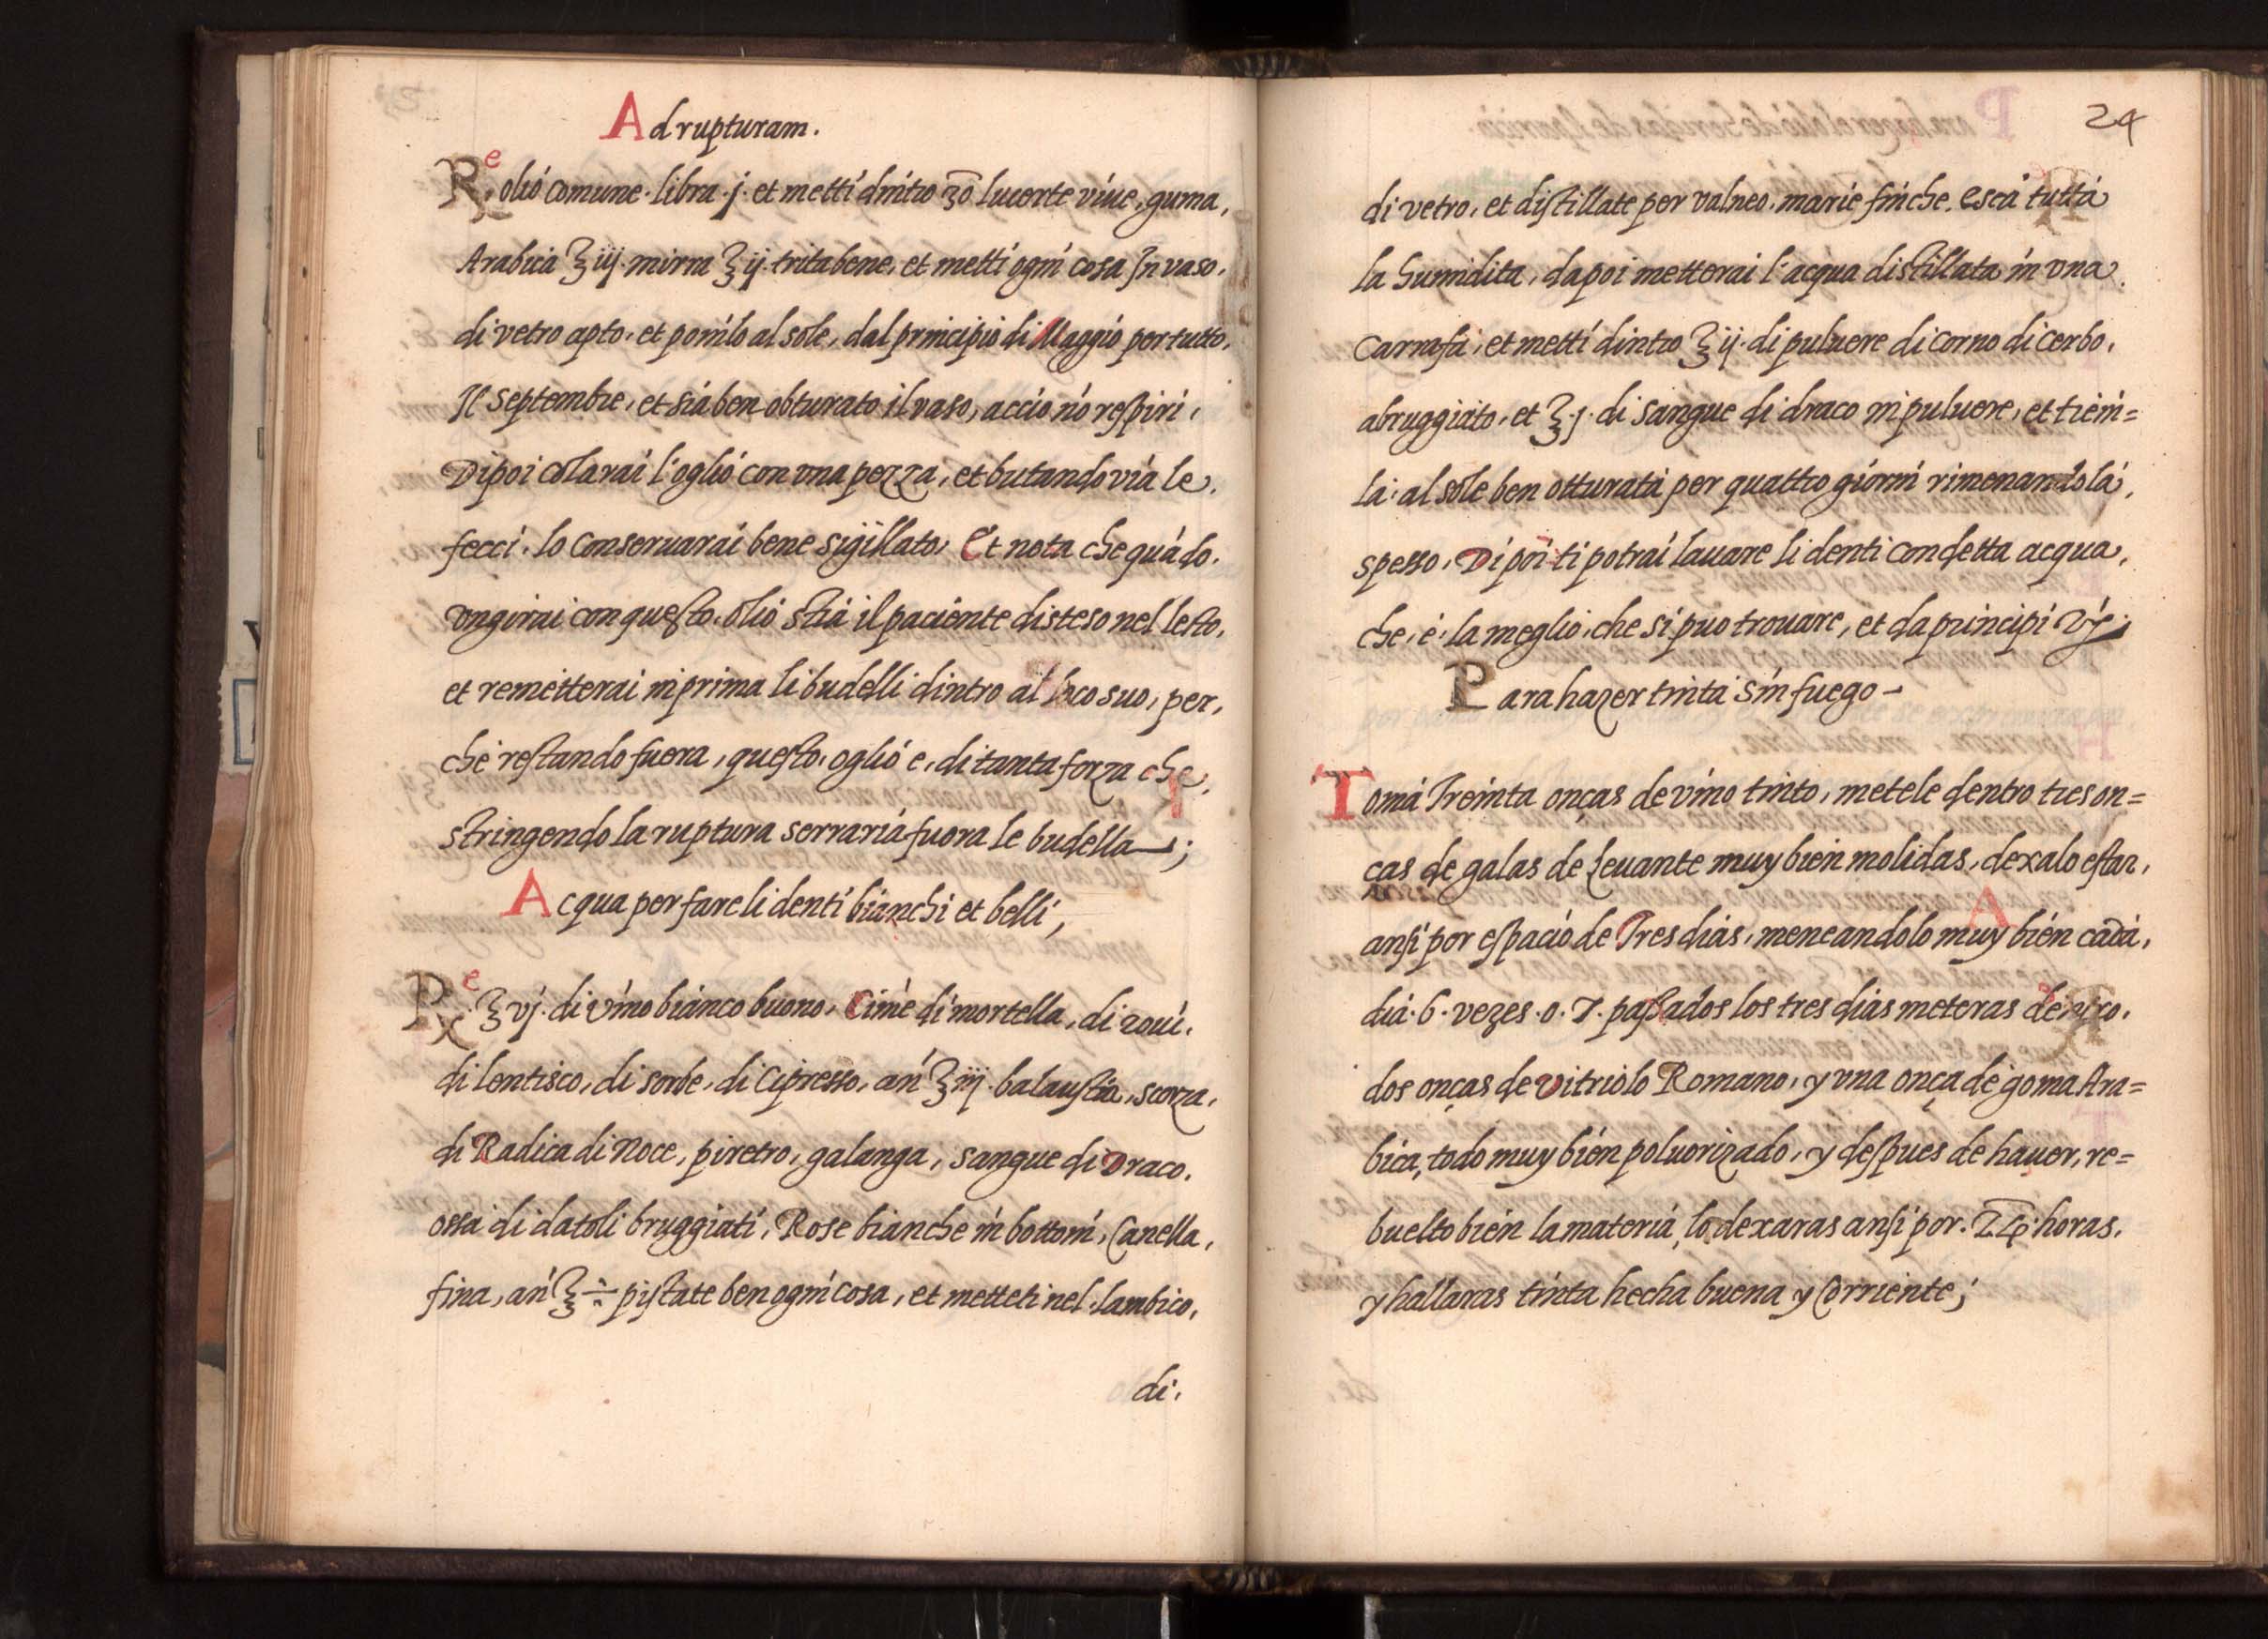 Ad rupturam.
Re olió comune. libra. j. et mettí dintro 30 lucerte viue, guma,
Arabica ℥ iij. mirra ℥ ij. trita bene, et mettí ogni cosa In vaso,
di vetro apto, et ponilo al sole, dal principio di Maggio per tutto,
Il Septembre, et siá ben obturato il vaso, acció nó respiri,
Dipoi colarai l'oglió con una pezza, et butando viá le,
fecci. lo conseruarai bene sigillato, Et nota che quádo,
ongirai con questo. olió stiá il paciente disteso nel letto,
et remetterai in prima li budelli dintro al loco suo, per,
ché restando fuora, questo. oglió e, di tanta forza che,
stringendo la ruptura serrariá fuora le budella;
Acqua per fare li dentí bianchi et belli,
Re ℥ vj. di vino bianco buono, Cime di mortella, di roui,
di lentisco, di sorbe, di Cipresso, an ℥ iij. balaustia, scorza,
di Radica di Noce, piretro, galanga, sangue di Draco.
ossa di datoli bruggiatí, Rose bianche in bottoni, Canella,
fina, an ℥ ÷ pistate ben ogni cosa, et metteti nel. lambico,
di,
24
di vetro, et distillate per valneo, marie finche, escá tutta
la humidita, dapoi metterai l'acqua distillata in una,
Carrafa, et mettí dintro ℥ ij. di puluere di corno di cerbo,
abruggiato, et ℥. j. di sangue di draco in puluere, et tieni=
la, al sole ben otturata per quattro giorni rimenandola,
spesso, Dipoi ti potrai lauare li denti con detta acqua,
che, é, la meglio, che si puo trouare, et da principi
Para hazer tinta sin fuego -
Toma Treinta onças de vino tinto, metele dentro tres on=
ças de galas de Leuante muy bien molidas, dexalo estar,
ansi por espació de Tres dias, meneandolo muy bién cada,
diá. 6. vezes. o. 7. passados los tres dias meteras dentro,
dos onças de vitriolo Romano, y una onça de goma Ara=
bica, todo muy bién poluorizado, y despues de hauer, re=
buelto bién la materiá, lo dexaras ansi por. 24. horas,
y hallaras tinta hecha buena y Corriente;